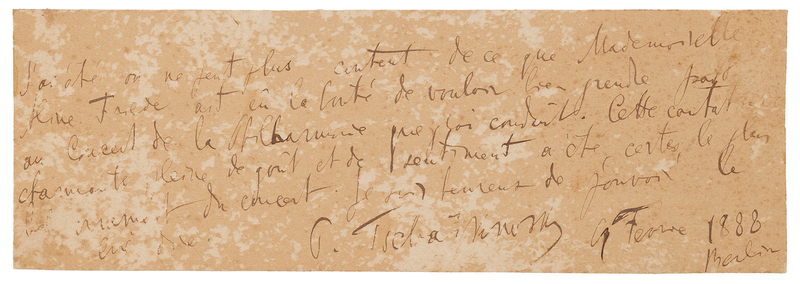 J'ai été on ne peut plus content de ce que Mademoiselle
Aline Friede ait eû la bonté de vouloir bien prendre part
au Concert de la Philharmonie que j'ai conduit. Cette cantat
charmante, pleine de goût et de sentiment a été certes le plus
moment du concert. Je suis heureux de pouvoir le
lui dire.
P. Tschaïkovsky 9 Fevrier 1888
Berlin